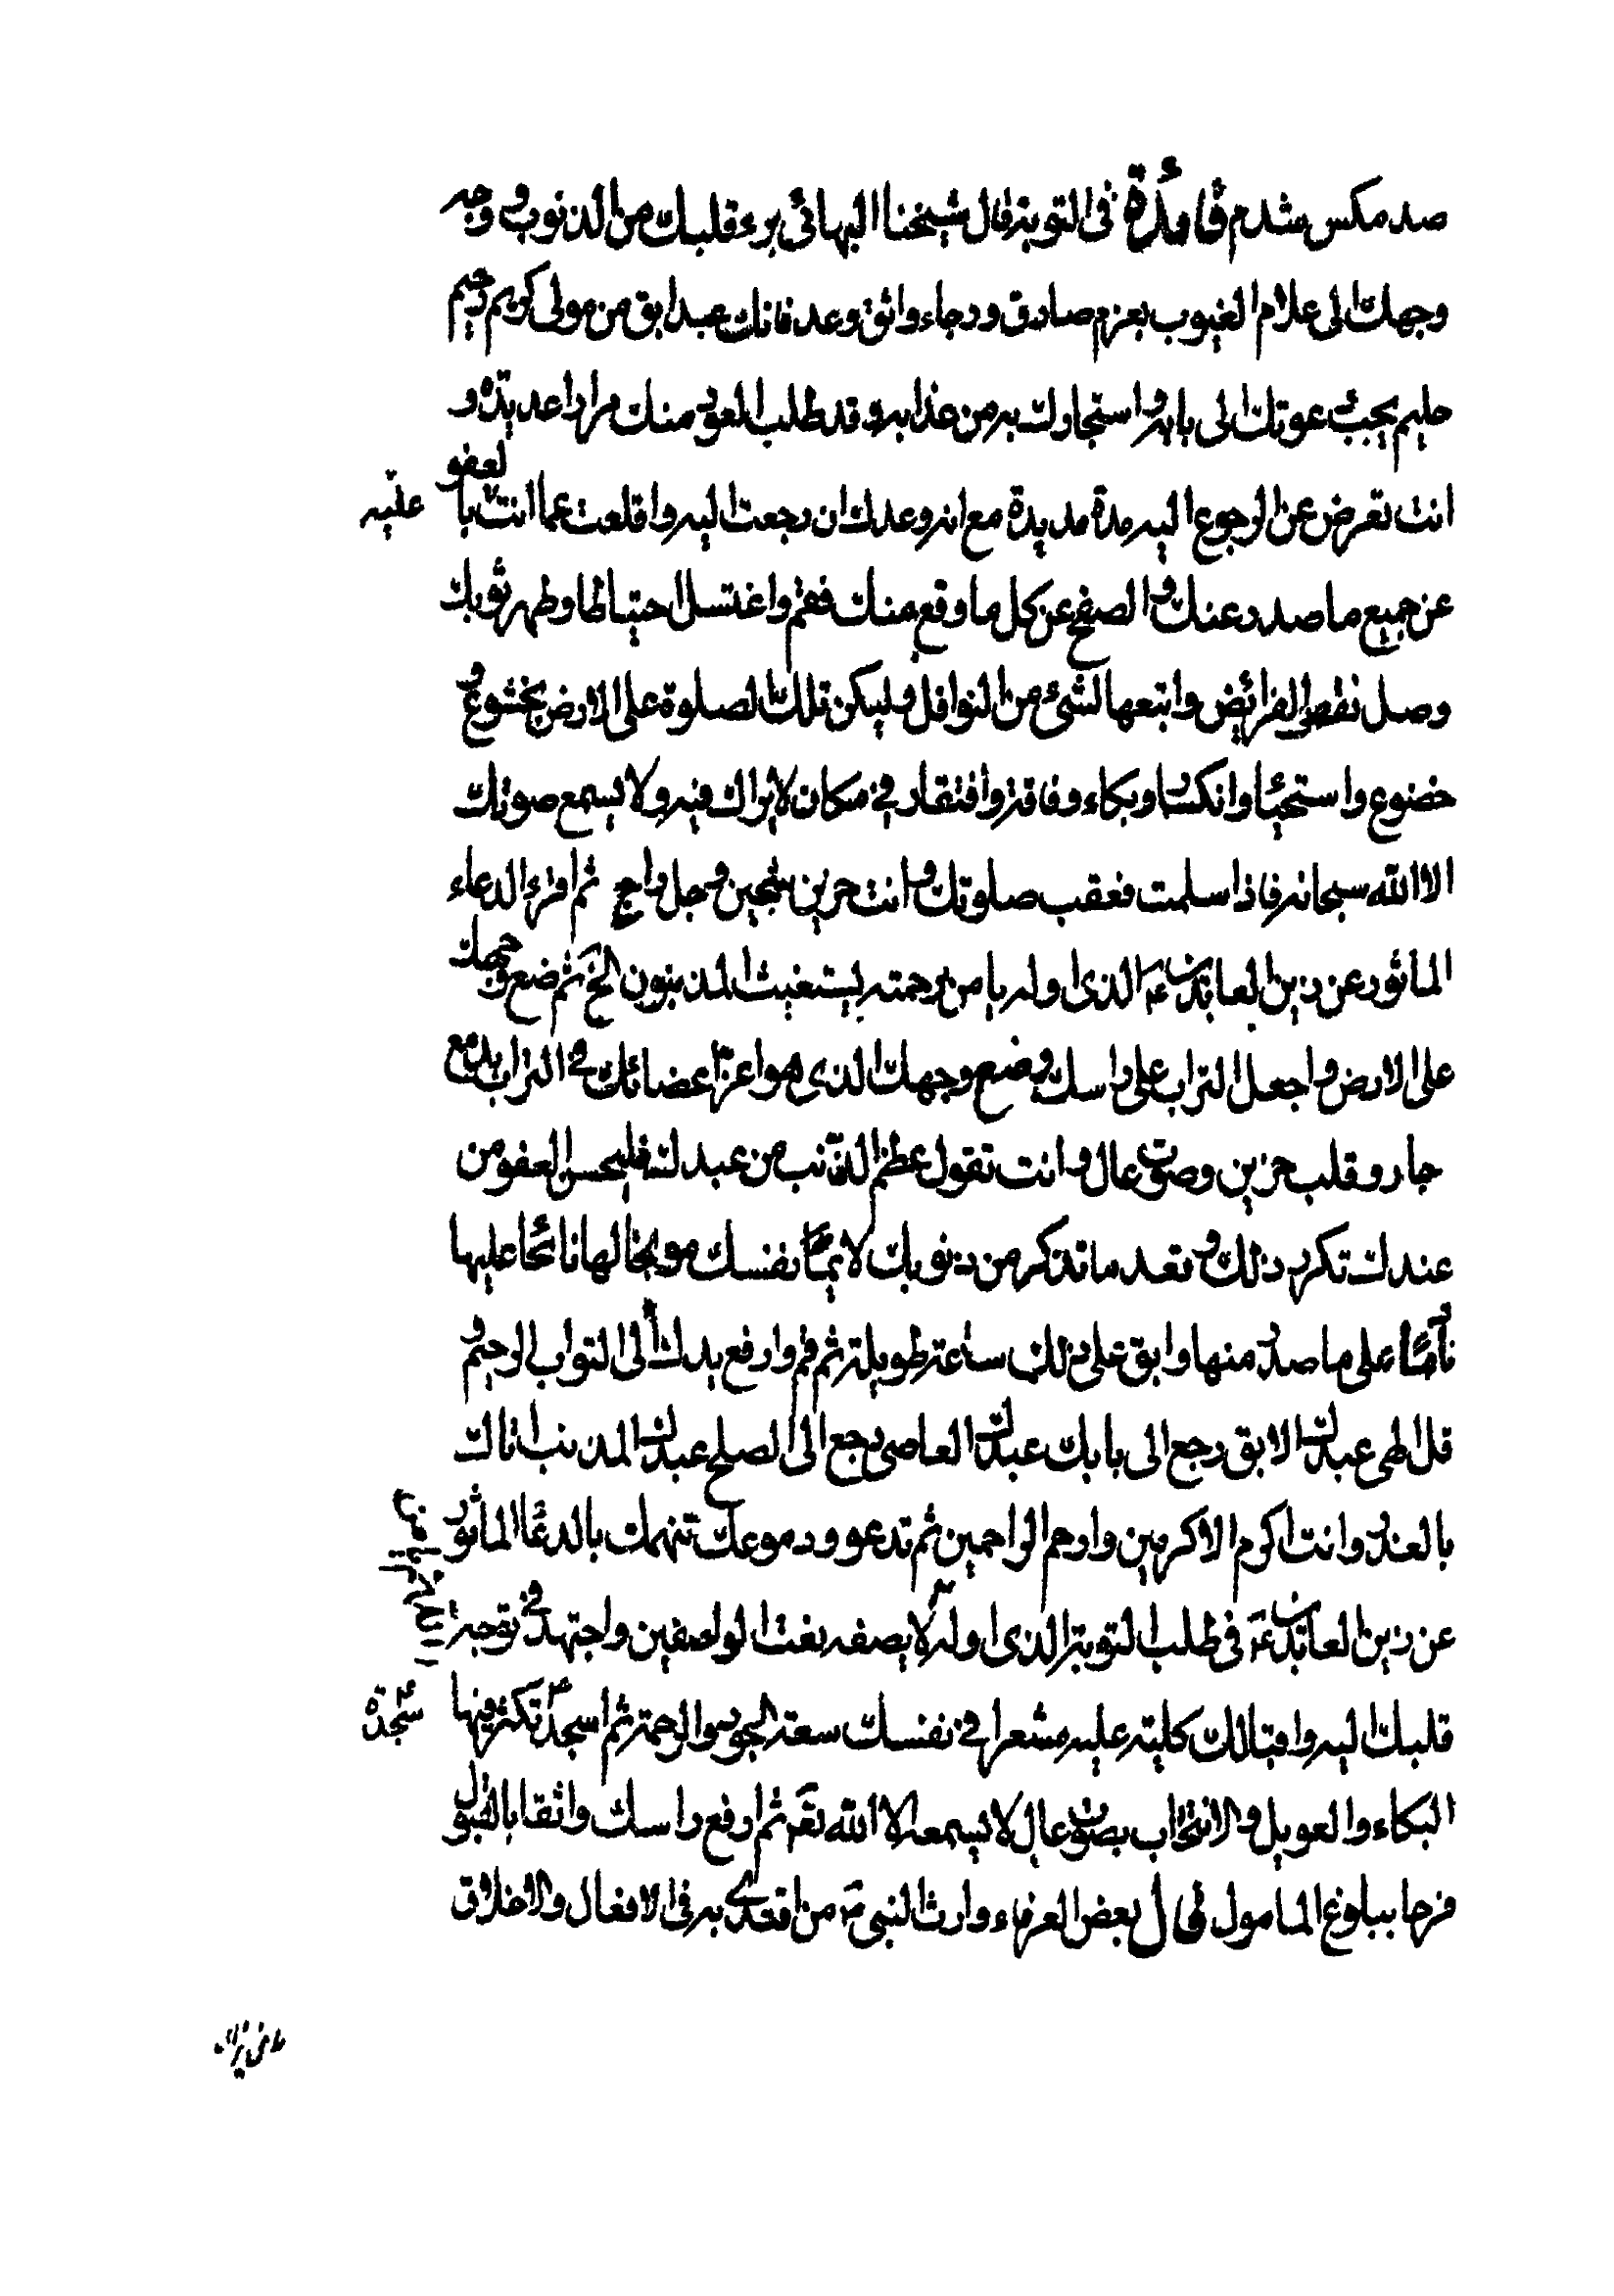 صد مكس مثدم فائدة فى التوبة قال شيخنا البهائى برء قلبك من الذنوب و وجه
وجهك الى علام الغيوب بعزم صادق و رجاء واثق و عد فانك عبد ابق من مولى كريم رحيم
حليم يحب عودتك الى بابه و استجارتك به من عذابه و قد طلب العود منك مرارا عديدة و
انت تعرض عن الرجوع اليه مدة مديدة مع انه وعدك ان رجعت اليه و اقلعت عما انت عليه بالعفو
عن جميع ما صدر عنك و الصفح عن كل ما وقع منك فقم و اغتسل احتياطا و طهر ثوبك
و صل بعض الفرائض و اتبعها لشئ من النوافل و ليكن تلك الصلوة على الارض بخشوع و
خضوع و استحياء و انكسار و بكاء و فاقة و افتقار فى مكان لا يراك فيه و لا يسمع صوتك
الا الله سبحانه فاذا سلمت فعقب صلوتك و انت حزين شجين وجل راج ثم اقرء الدعاء
الماثور عن زين العابدين ع الذى اوله يا من برحمته يستغيث المذنبون الخ ثم ضع وجهك
على الارض و اجعل التراب على راسك و ضع وجهك الذى هو اعز اعضائك فى التراب بدمع
جار و قلب حزين و صوت عال و انت تقول عظم الذنب من عبدك فليحسن العفو من
عندك تكرر ذلك و تعد ما تذكر من ذنوبك لائما نفسك موبخا لها نائحا عليها
نادما على ما صدر منها و ابق على ذلك ساعة طويلة ثم قم و ارفع يدك الى التواب الرحيم و
قل الهى عبدك الابق رجع الى بابك عبدك العاصى رجع الى الصلح عبدك المذنب اتاك
بالعذر و انت اكرم الاكرمين و ارحم الراحمين ثم تدعو و دموعك تنهمل بالدعاء الماثور
عن زين العابدين ع فى طلب التوبة الذى اوله لا يصفه نعت الواصفين و اجتهد فى توجه
قلبك اليه و اقبالك كليته عليه مشعرا فى نفسك سعة الجود و الرحمة ثم اسجد سجدة تكثر فيها
البكاء و العويل و الانتحاب بصوت عال لا يسمعه الا الله تع ثم ارفع راسك واثقا بالقبول
فرحا ببلوغ المامول قال بعض العرفاء وارث النبى ص من اقتدى به فى الافعال و الاخلاق